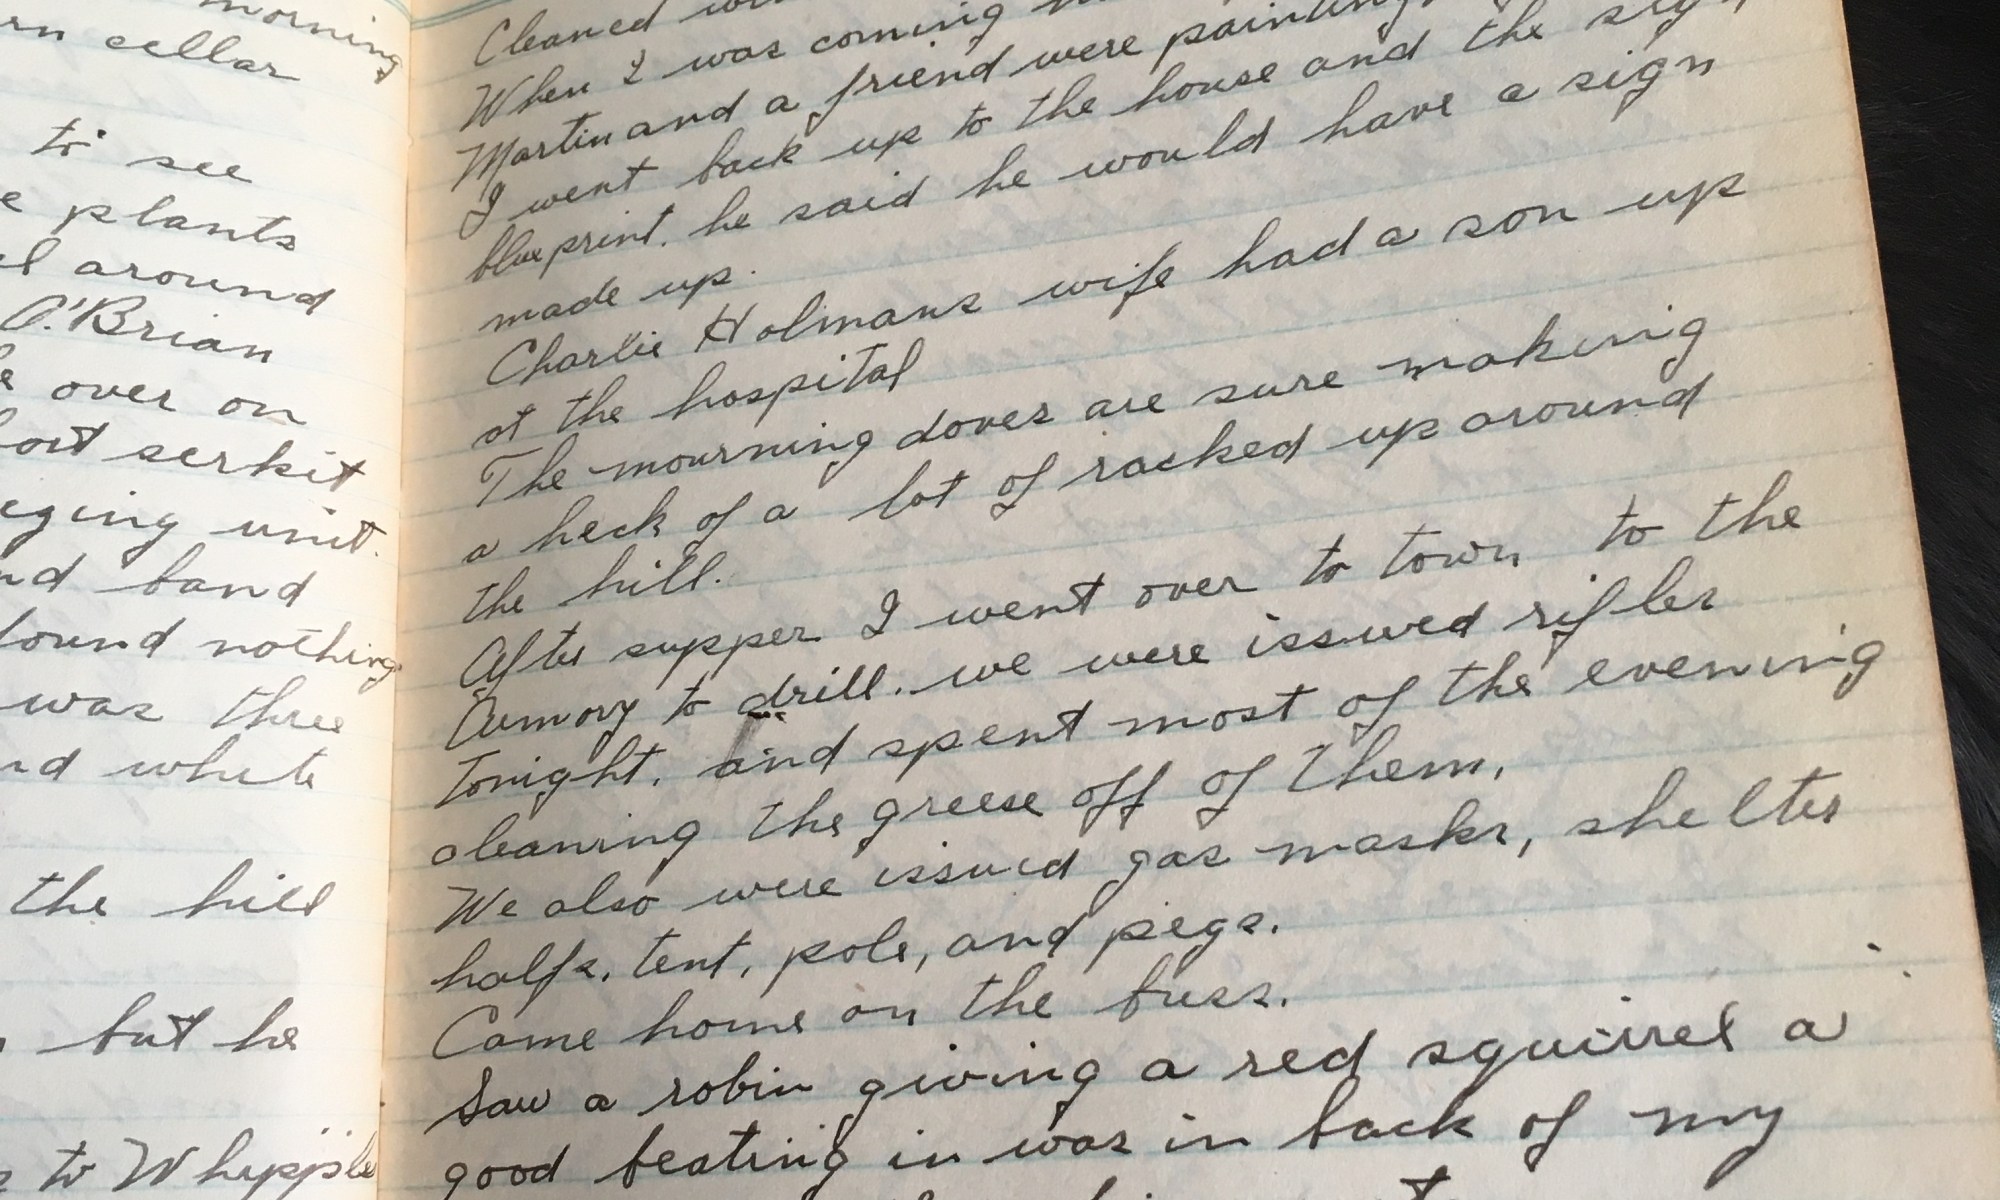 morning
cellar
to see
plants
around
O'Brian
over on
serkit
unit.
band
nothing
was three
white
the hill
but he
to Whipple
Cleaned
When I was coming
Martin and a friend were painting
I went back up to the house and the
blueprint. he said he would have a sign
made up.
Charlie Holmans wife had a son up
at the hospital
The mourning doves are sure making
a heck of a lot of racked up around
the hill.
After supper I went over to town to the
Armory to drill. we were issued rifles
tonight. and spent most of the evening
cleaning the greese off of them.
We also were issued gas masks, shelter
halfs. tent, pole, and pegs.
Came home on the buss.
Saw a robin giving a red squirrel a
good beating in was in back of my